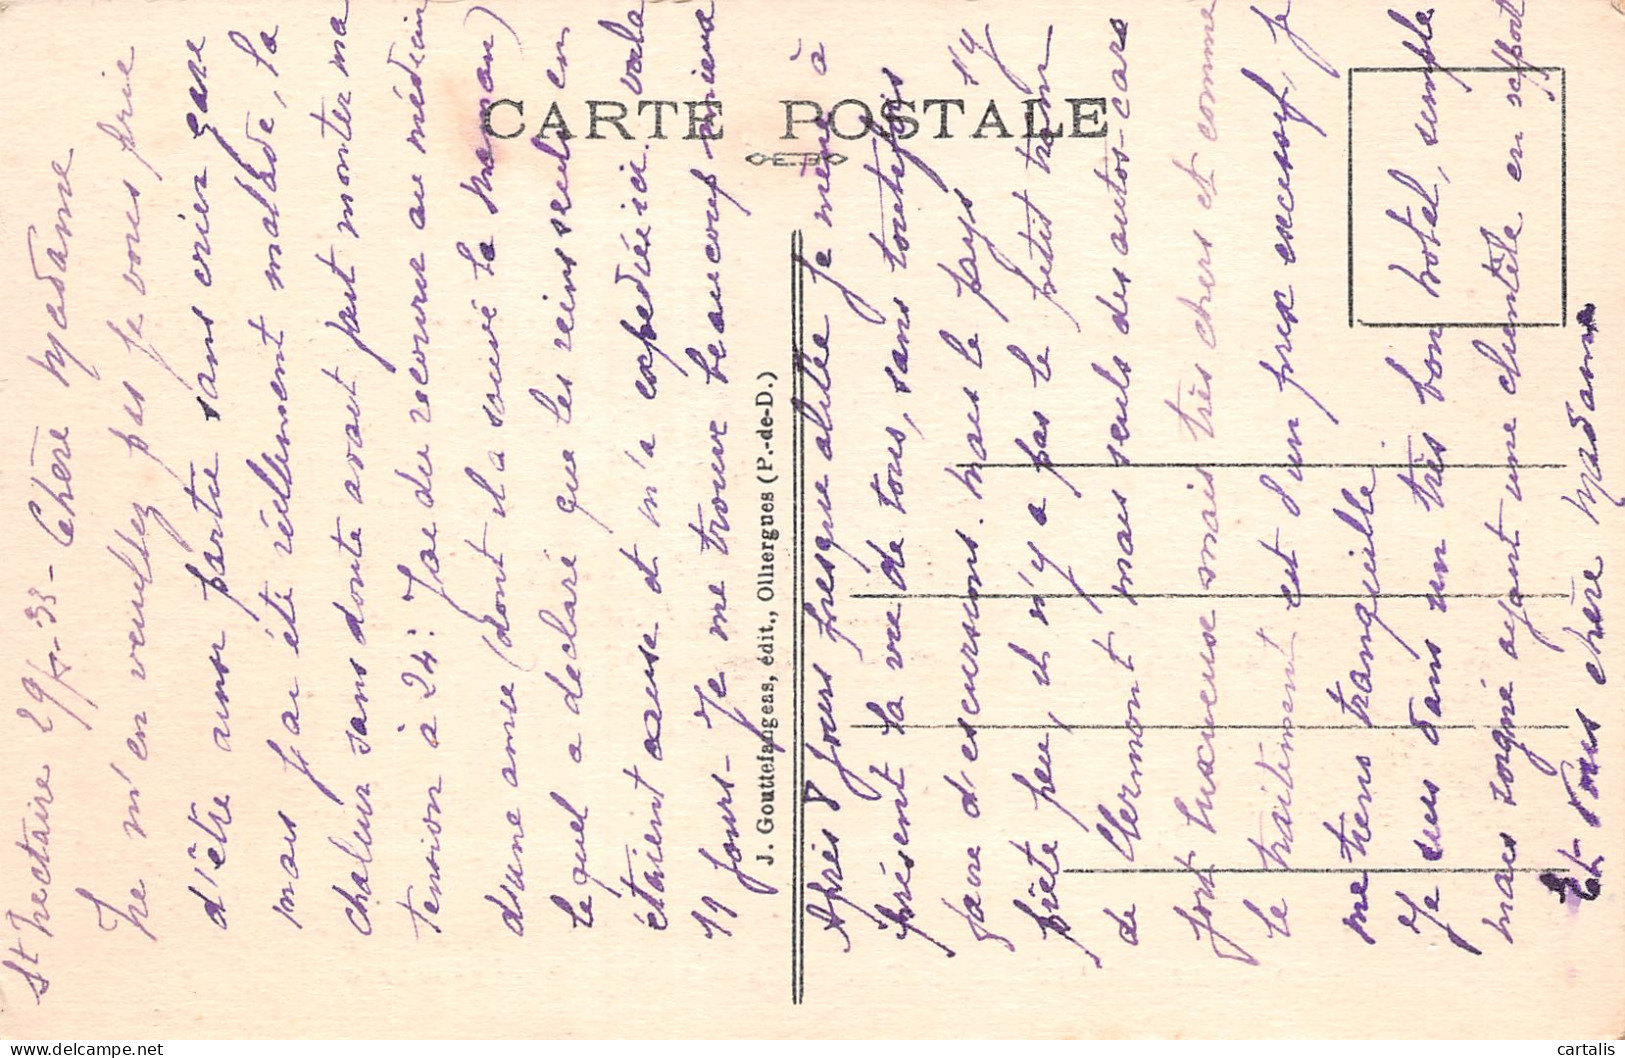 CARTE POSTALE
St Nectaire 29/8 - 33 - Chère Madame
Ne m'en veuillez pas je vous prie
d'être ainsi partie sans crier gare
mais j'ai été réellement malade, la
chaleur sans doute avait fait monter ma
tension à 24 : J'ai du recourir au médecin
d'une amie (dont il a sauvé la maman)
lequel a déclaré que les reins seuls en
étaient cause et m'a expédiée ici voila
11 jours - Je me trouve beaucoup mieux
J. Gouttefangeas, édit., Olliergues (P.-de-D.)
Après 8 jours presque alitée je mène à
présent la vie de tous, sans toutefois
faire d'excursions. mais le pays s'y
prête peu, il n'y a pas le petit train
de Clermont mais seuls des autos-cars
fort luxueuse mais très chers et comme
le traitement est d'un prix excessif, je
me tiens tranquille
Je suis dans un très bon hotel, simple
mais soigné ayant une clientèle en rapport
Et Vous chère Madame
cartalis